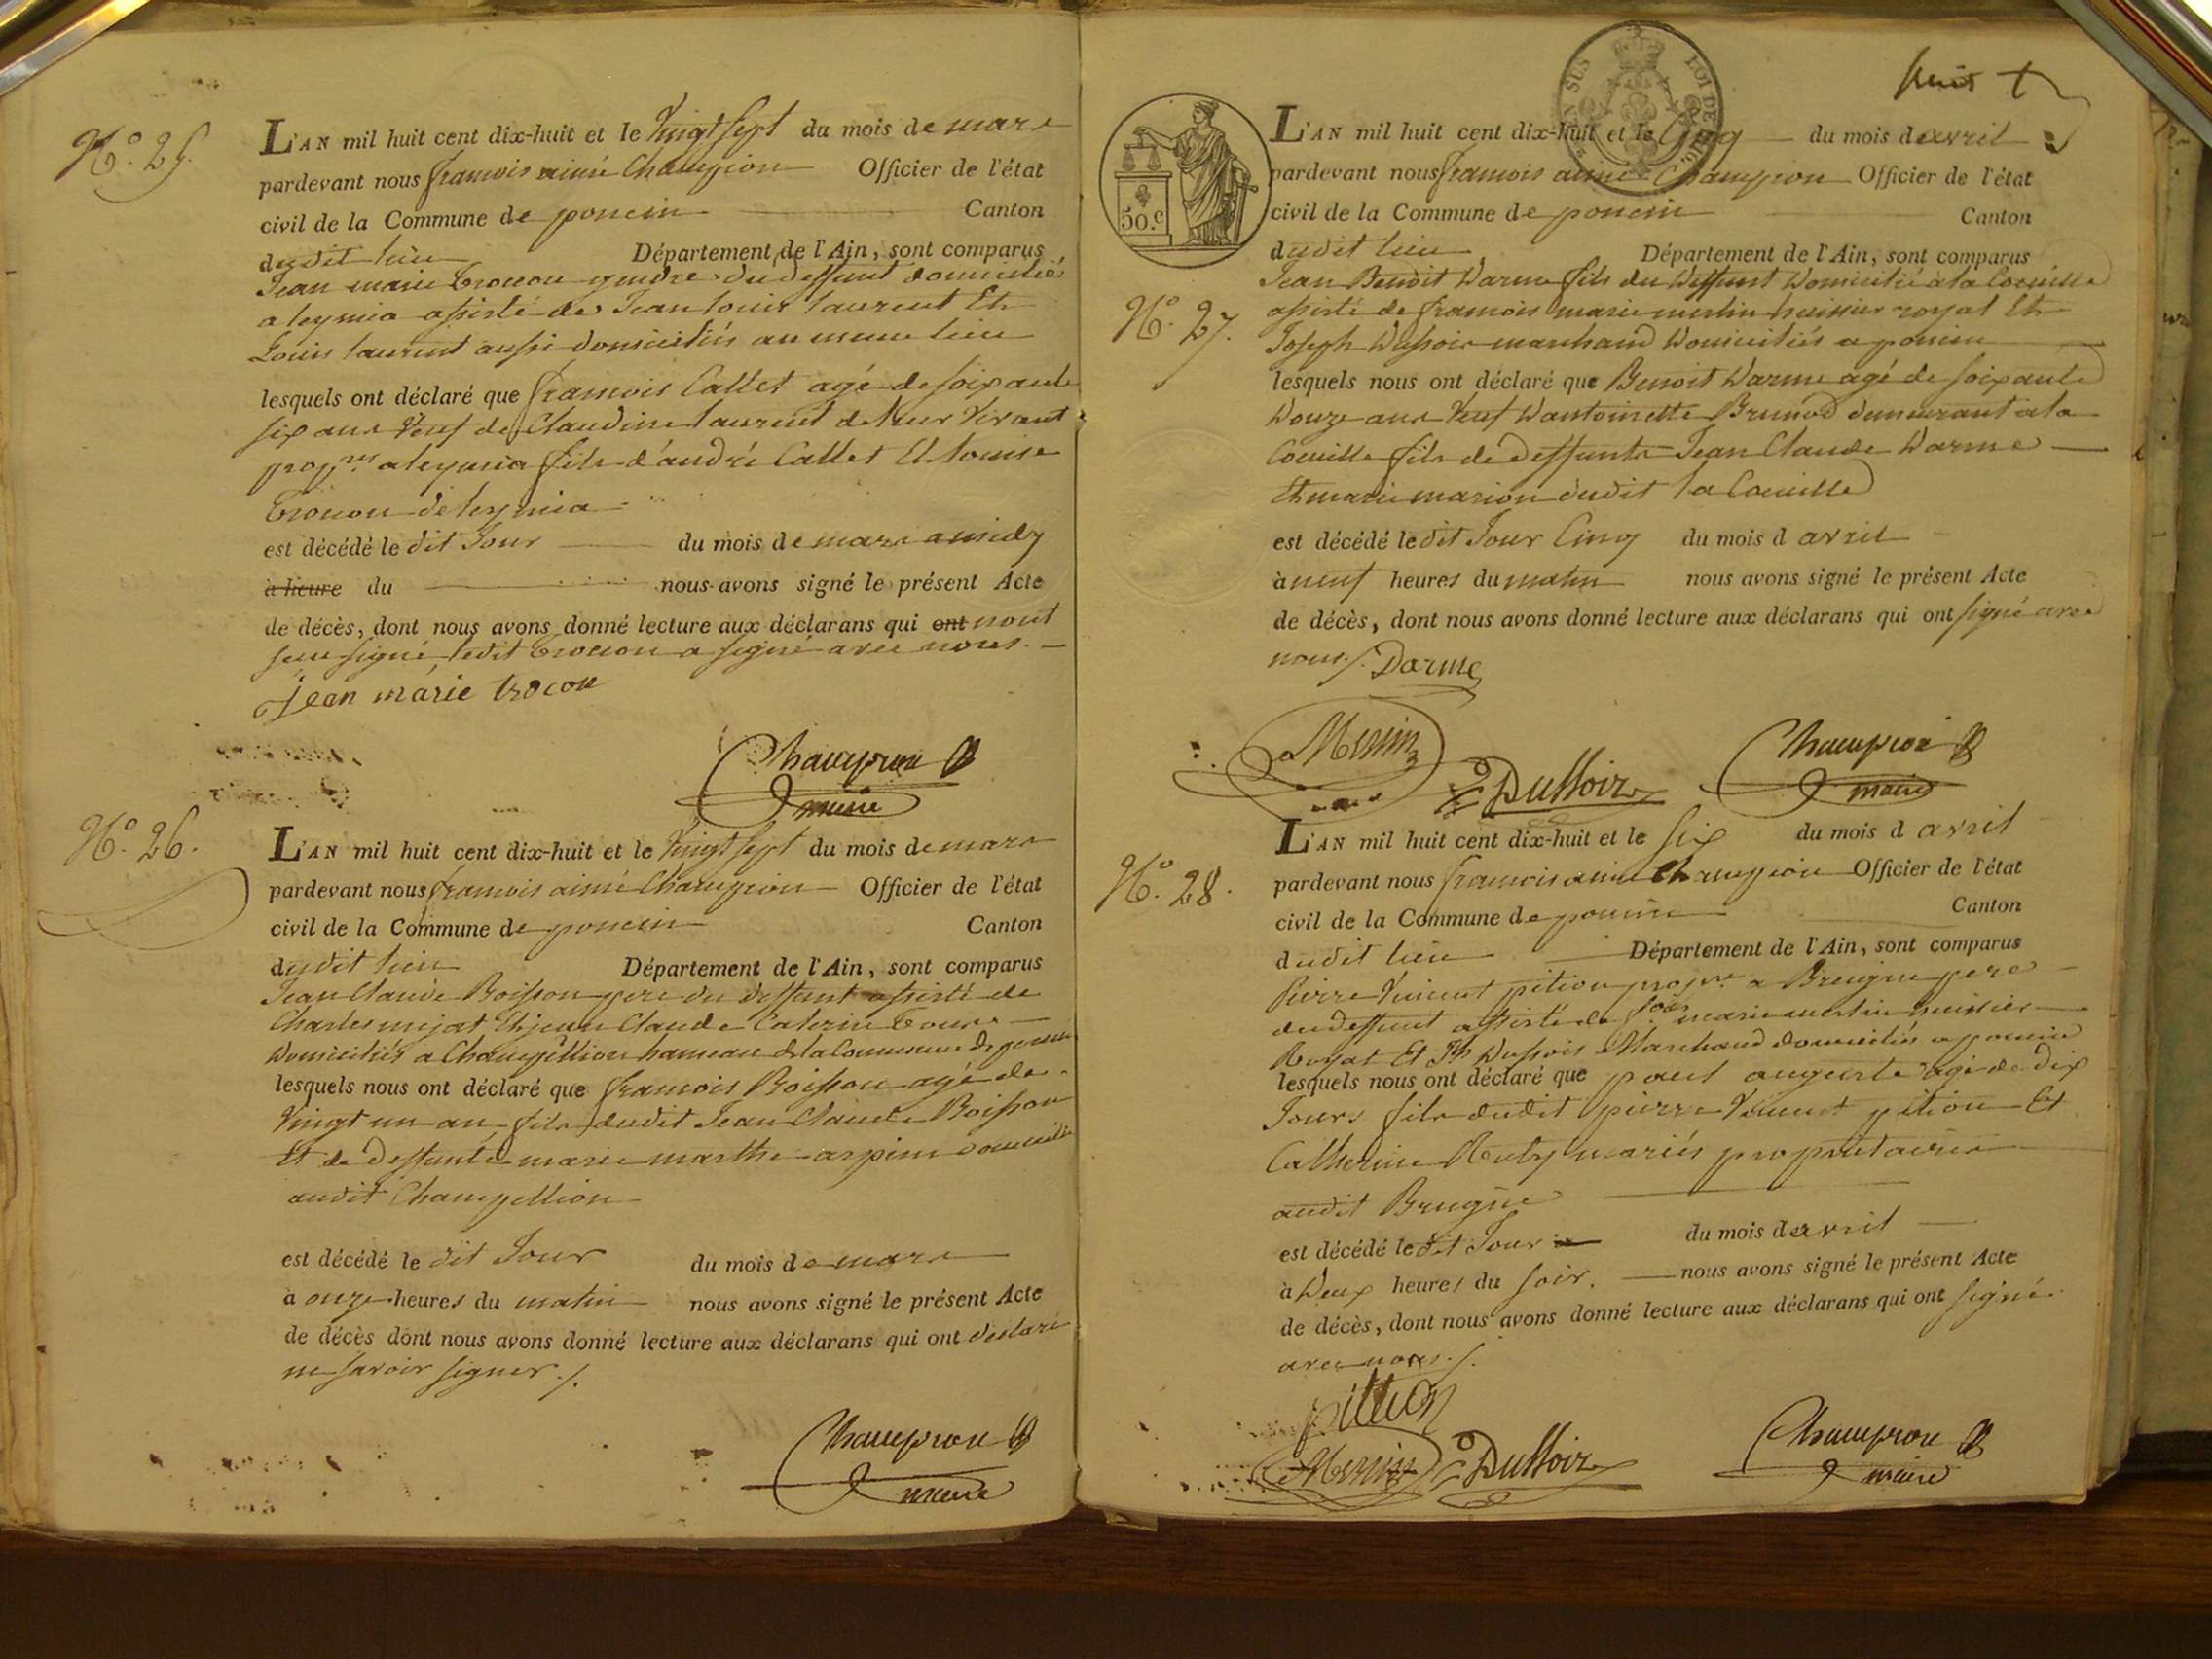 N.o 25.
L'AN mil huit cent dix-huit et le Vingt Sept du mois de mars
pardevant nous françois aimé Champion Officier de l'état
civil de la Commune de poncin Canton
dudit lieu Département de l'Ain, sont comparus
Jean marie trocon gendre du deffunt domicilié
a leymia assisté de Jean louis laurent Et
Louis laurent aussi domiciliés au meme lieu
lesquels ont déclaré que françois Callet agé de soixante
six ans Veuf de Claudine laurent de leur Vivant
prop.res a leymia fils d'andré Callet Et Louise
trocon de leymia
est décédé le dit Jour du mois de mars a midy
à heure du nous avons signé le présent Acte
de décès, dont nous avons donné lecture aux déclarans qui ont nont
signé, ledit trocon a signé avec nous.
Jean marie trocon
Champion
maire
N.o 26.
L'AN mil huit cent dix-huit et le Vingt Sept du mois de mars
pardevant nous françois aimé Champion Officier de l'état
civil de la Commune de poncin Canton
dudit lieu Département de l'Ain, sont comparus
Jean Claude Boisson pere du deffunt assisté de
Charles mijat Et jean Claude Caterin tous
domiciliés a Champeillion hameau de la Commune de poncin
lesquels nous ont déclaré que françois Boisson agé de
Vingt un an fils dudit Jean Claude Boisson
Et de deffunte marie marthe arpin domicilié
audit Champellion
est décédé le dit Jour du mois de mars
à onze heures du matin nous avons signé le présent Acte
de décès dont nous avons donné lecture aux déclarans qui ont declaré
ne savoir signer ./.
Champion
maire
huit
50.c
N.o 27.
L'AN mil huit cent dix-huit et le Cinq du mois d avril
pardevant nous françois aimé Champion Officier de l'état
civil de la Commune de poncin Canton
dudit lieu Département de l'Ain, sont comparus
Jean Benoit Darme fils du deffunt domicilié a la Coeuille
assisté de françois marie merlin huissier royal Et
Joseph Dussoir marchand domiciliés a poncin
lesquels nous ont déclaré que Benoit Darme agé de soixante
douze ans Veuf d'antoinette Brunod demeurant a la
Coeuille fils de deffunts Jean Claude Darme
Et marie marion dudit la Coeuille
est décédé le dit Jour Cinq du mois d avril
à neuf heures du matin nous avons signé le présent Acte
de décès, dont nous avons donné lecture aux déclarans qui ont signé avec
nous ./. Darme
Merlin
Dussoir
Champion
maire
N.o 28.
L'AN mil huit cent dix-huit et le Six du mois d avril
pardevant nous françois aimé Champion Officier de l'état
civil de la Commune de poncin Canton
dudit lieu Département de l'Ain, sont comparus
Pierre Vincent pition prop.re a Breigne pere
du deffunt assisté de f.ois marie merlin huissier
Royal Et J.ph Dussois Marchand domiciliés a poncin
lesquels nous ont déclaré que paul auguste agé de dix
Jours fils dudit pierre Vincent pition Et
Catherine mariés proprietaires
audit
est décédé le dit Jour du mois d avril
à Deux heures du soir. nous avons signé le présent Acte
de décès, dont nous avons donné lecture aux déclarans qui ont signé
avec nous ./.
pittion
Merlin
Dussoir
Champion
maire